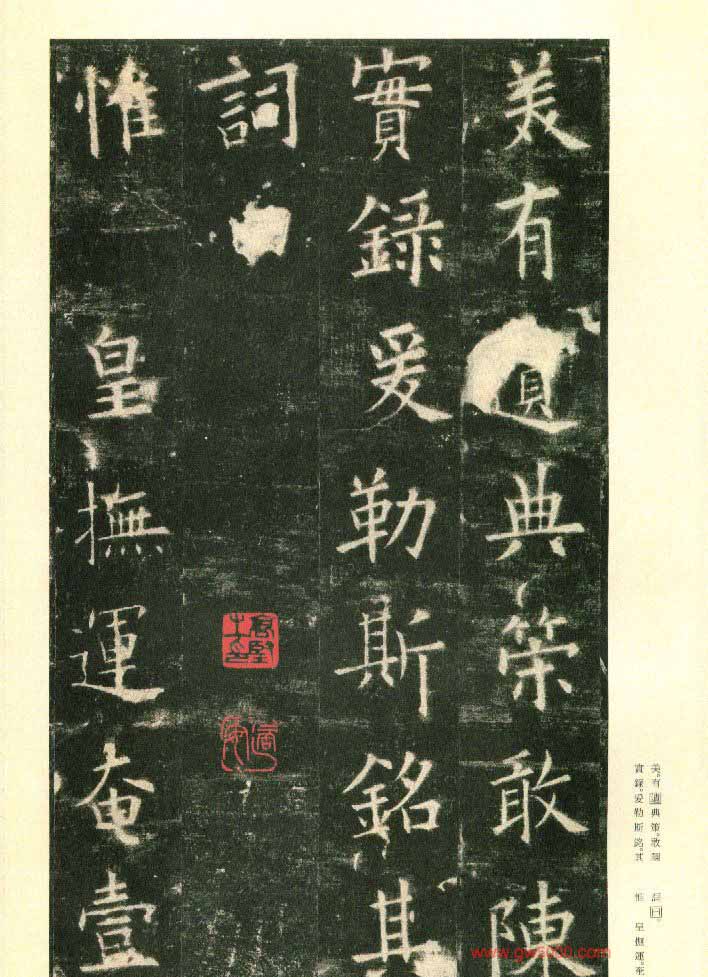 美有遺典策敢陳
實録爰勒斯銘其
詞
惟皇撫運奄壹
美。有遺典策。敢陳
實錄。爰勒斯銘。其
詞曰。
惟　皇撫運。奄